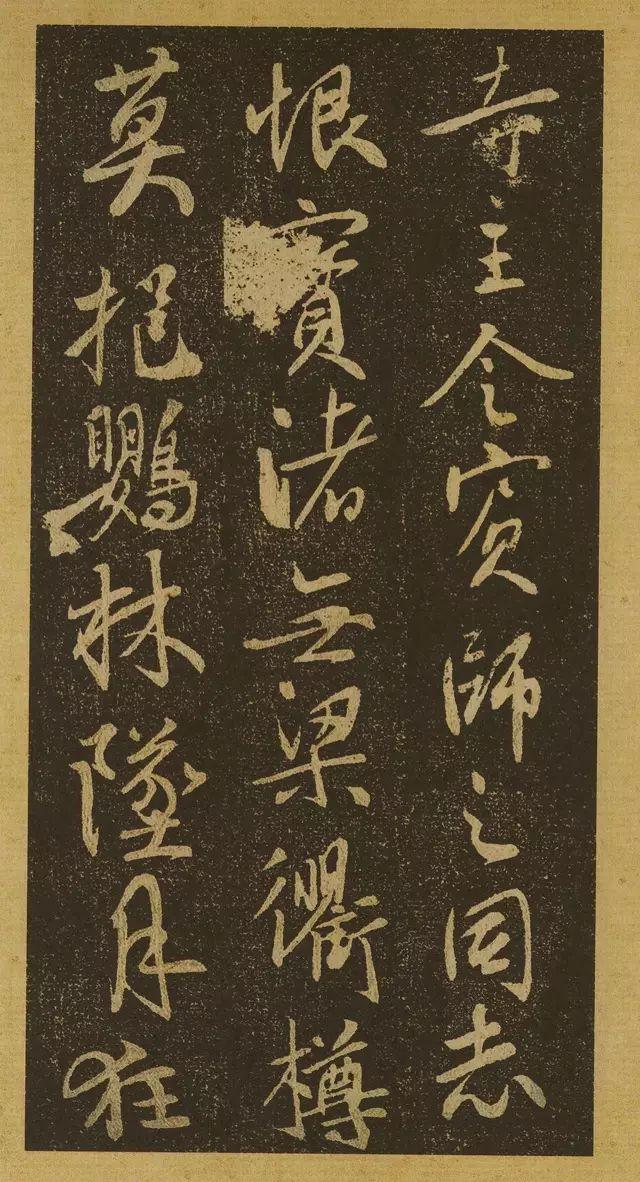 寺主令賓師之同志
恨寶渚無梁衢樽
莫挹鸚林墜月狂